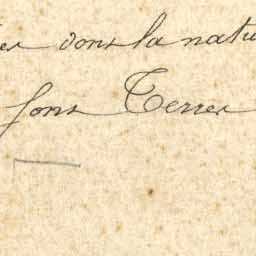 dans la natu
font Terres